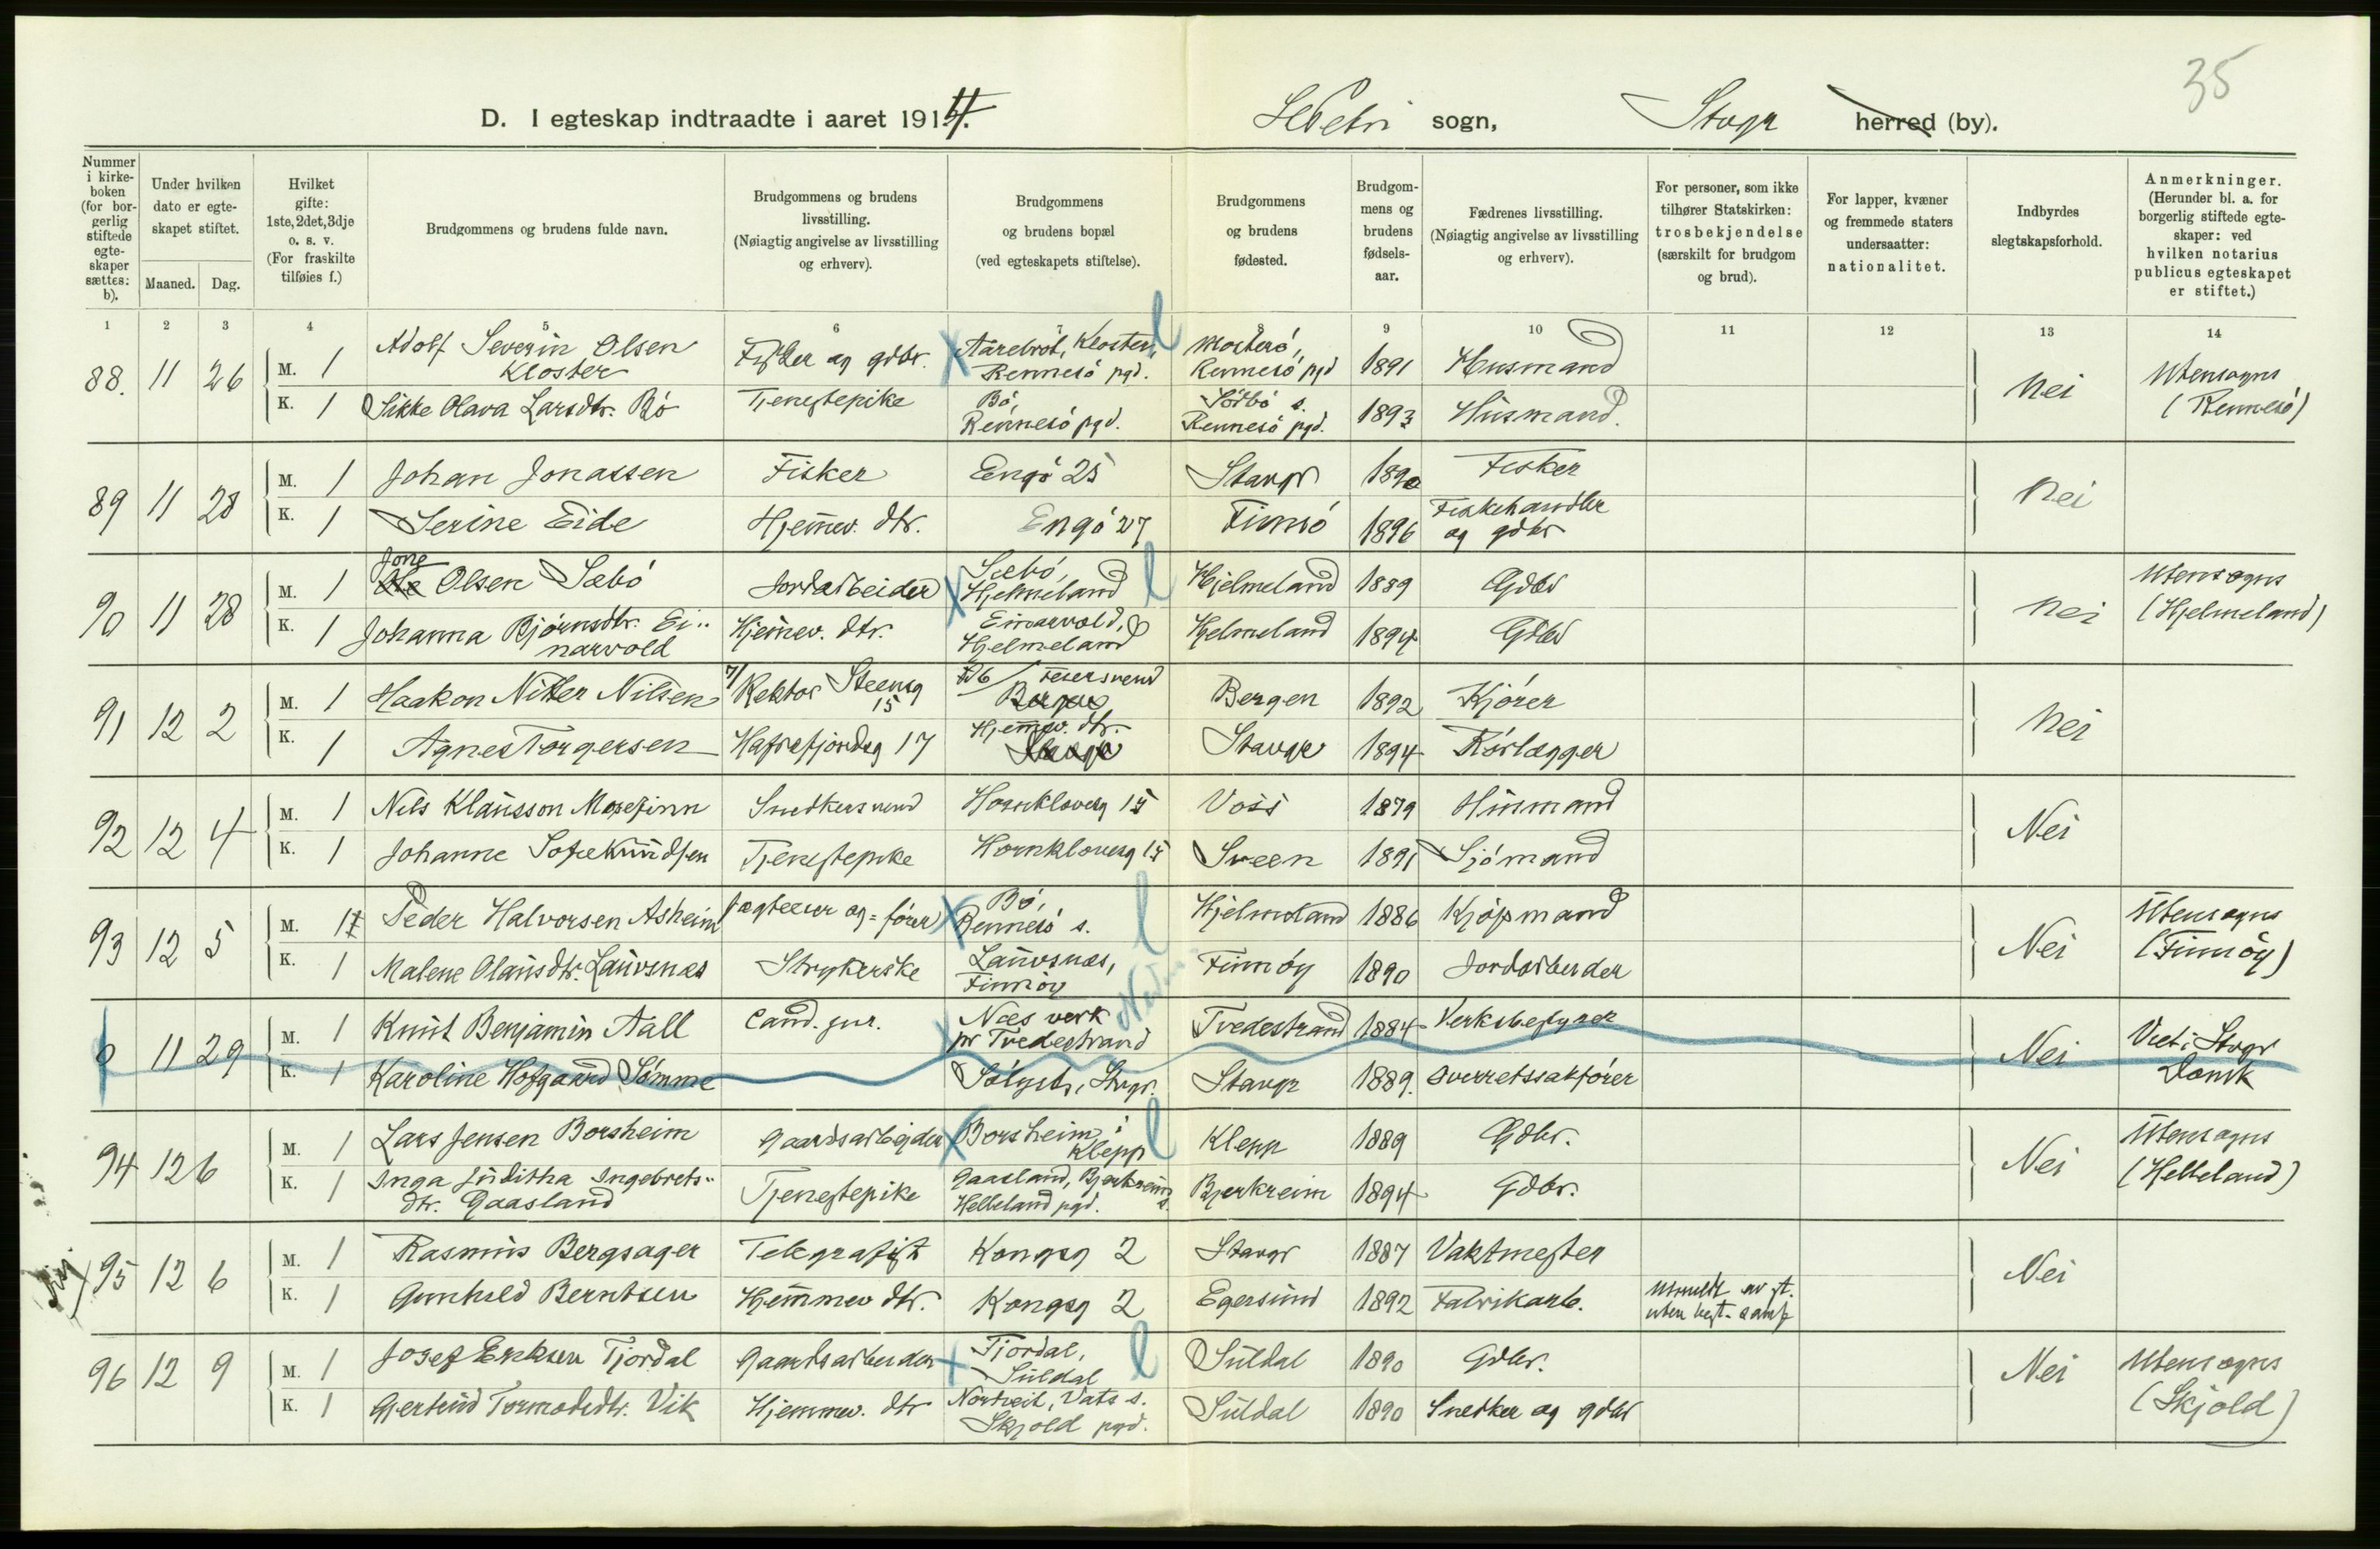 35
D. I egteskap indtraadte i aaret 1914.
St. Petri sogn,
Stvgr herred (by).
Nummer i kirke-boken (for bor-gerlig stiftede egte-skaper sættes: b).
Under hvilken dato er egte-skapet stiftet.
Maaned. Dag.
Hvilket gifte: 1ste, 2det, 3dje o. s. v. (For fraskilte tilføies f.)
Brudgommens og brudens fulde navn.
Brudgommens og brudens livsstilling. (Nøiagtig angivelse av livsstilling og erhverv).
Brudgommens og brudens bopæl (ved egteskapets stiftelse).
Brudgommens og brudens fødested.
Brudgom-mens og brudens fødsels-aar.
Fædrenes livsstilling. (Nøiagtig angivelse av livsstilling og erhverv).
For personer, som ikke tilhører Statskirken: trosbekjendelse (særskilt for brudgom og brud).
For lapper, kvæner og fremmede staters undersaatter: nationalitet.
Indbyrdes slegtskapsforhold.
Anmerkninger. (Herunder bl. a. for borgerlig stiftede egte-skaper: ved hvilken notarius publicus egteskapet er stiftet.)
1 2 3 4 5 6 7 8 9 10 11 12 13 14
88. 11 26 M. 1 Adolf Severin Olsen Kloster Fisker og gdbr. Aarebrot, Kloster, Rennesö pgd. Mosterö, Rennesö pgd 1891 Husmand Nei Utensogns (Rennesö)
K. 1 Sikke Olava Larsdtr. Bö Tjenestepike Bö, Rennesö pgd. Sörbö s. Rennesö pgd. 1893 Husmand.
89 11 28 M. 1 Johan Jonassen Fisker Engö 25 Stavgr 1890 Fisker Nei
K. 1 Serine Eide Hjemmev. dtr. Engö 27 Finnö 1896 Fiskehandler og gdbr
90 11 28 M. 1 Jone Olsen Sæbö Jordarbeider Sæbö, Hjelmeland Hjelmeland 1889 Gdbr Nei Utensogns (Hjelmeland)
K. 1 Johanna Bjørnsdtr. Ei-narvold Hjemmev. dtr. Einarvold, Hjelmeland Hjelmeland 1894 Gdbr
91 12 2 M. 1 Haakon Nitter Nilsen Rektor Steensg 15 Bergen Bergen 1892 Kjörer Nei
K. 1 Agnes Torgersen Hafrsfjordsg 17 Hjemmev. dtr. Stavgr Stavgr 1894 Rörlægger
92 12 4 M. 1 Nils Klausson Mosefinn Snedkersvend Hornklovesg 15 Voss 1879 Husmand Nei
K. 1 Johanne Sofie Knudsen Tjenestepike Hornklovesg 15 Sveen 1891 Sjömand
93 12 5 M. 1 Peder Halvorsen Asheim Jagteeier og = förer Bö, Rennesö s. Hjelmeland 1886 Kjöpmand Nei Utensogns (Finnöy)
K. 1 Malene Olausdtr. Lauvsnæs Strykerske Lauvsnæs, Finnöy Finnöy 1890 Jordarbeider
0 11 29 M. 1 Knut Benjamin Aall Cand. jur. Næs verk pr Tvedestrand Tvedestrand 1884 Verksbestyrer Nei Viet i Stvgr Domk
K. 1 Karoline Hofgaard Sömme Sölyst, Stvgr. Stavgr 1889. Overretssakförer
94 12 6 M. 1 Lars Jensen Borsheim Gaardsarbeider Borsheim i Klepp Klepp 1889 Gdbr. Nei Utensogns (Helleland)
K. 1 Inga Juditha Ingebrets-dtr. Gaasland Tjenestepike Gaasland, Bjerkreim s. Helleland pgd. Bjerkreim 1894 Gdbr.
95 12 6 M. 1 Rasmus Bergsager Telegrafist Kongsg 2 Stavgr 1887 Vaktmester Nei
K. 1 Gunhild Berntsen Hjemmev dtr. Kongsg 2 Egersund 1892 Fabrikarb. Utmeldt av st.
96 12 9 M. 1 Josef Eriksen Tjordal Gaardsarbeider Tjordal, Suldal Suldal 1890 Gdbr. Nei Utensogns (Skjold)
K. 1 Gjertrud Tormodsdtr. Vik Hjemmev. dtr Nortveit, Vats s. Skjold pgd. Suldal 1890 Snedker og gdbr